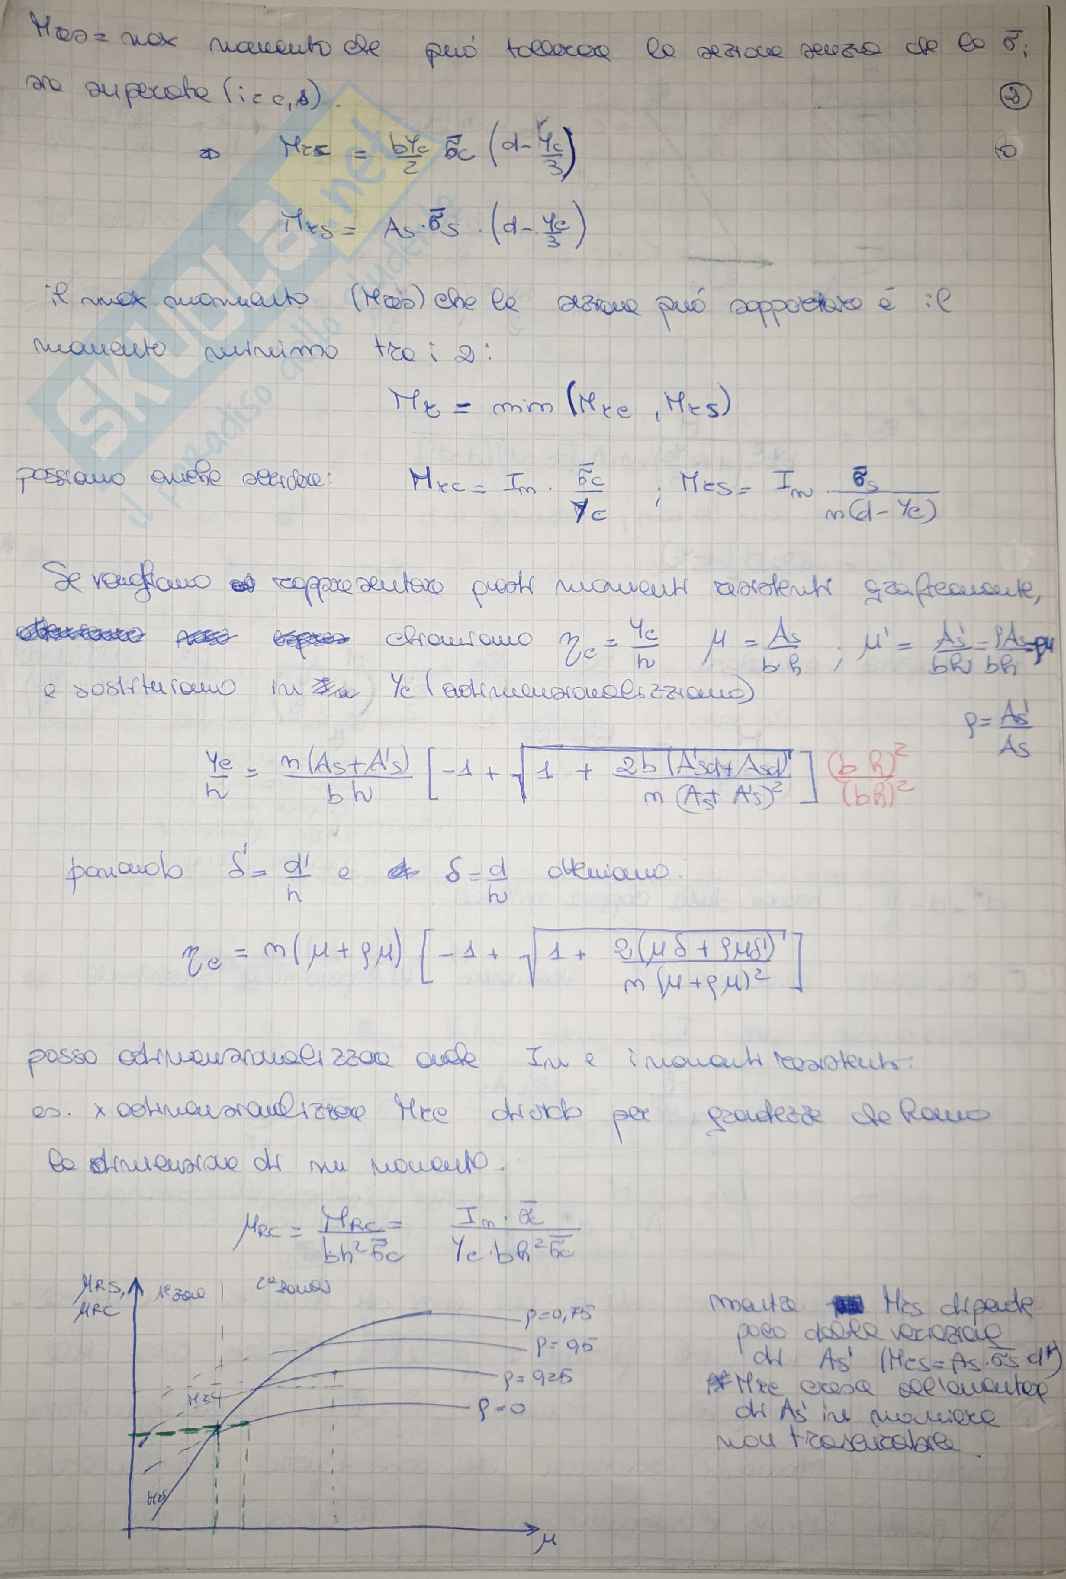 Mres = max momento che può tollerare la sezione senza che la σ̄i
sia superata (i=c,s).
②
⇒ Mrc = byc/2 σ̄c (d-yc/3)
10
Mrs = As·σ̄s·(d-yc/3)
il max momento (Mres) che la sezione può sopportare é il
momento minimo tra i 2:
Mr = min (Mrc, Mrs)
possiamo anche scrivere: Mrc = In · σ̄c/yc ; Mrs = In · σ̄s/n(d-yc)
Se vogliamo rappresentare questi momenti resistenti graficamente,
chiamiamo ηc = yc/h μ = As/bh ; μ' = As'/bh = ρAs/bh = ρμ
e sostituiamo in yc (adimensionalizziamo)
ρ = As'/As
yc/h = n(As+A's)/bh [-1 + √1 + 2b(A'sd'+Asd)/n(As+A's)²] (bh)²/(bh)²
ponendo δ' = d'/h e δ = d/h otteniamo:
ηc = n(μ+ρμ) [-1 + √1 + 2(μδ+ρμδ')/n(μ+ρμ)²]
posso adimensionalizzare anche In e i momenti resistenti:
es. x adimensionalizzare Mrc divido per grandezze che hanno
la dimensione di un momento.
μRC = MRC/bh²σ̄c = In·σ̄c/yc·bh²σ̄c
μRS,
μRC
1ª zona
2ª zona
ρ=0,75
ρ=0,5
ρ=0,25
ρ=0
μ
mentre Mrs dipende
poco dalla variazione
di As' (Mrs=As·σ̄s·d*)
Mrc cresce all'aumentare
di As' in maniera
non trascurabile.
Skuola.net
il paradiso dello studente